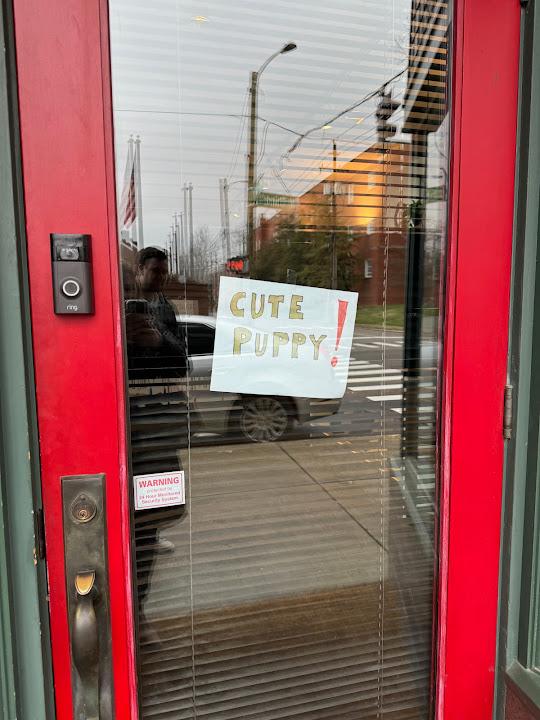 CUTE
PUPPY!
ring
WARNING
protected by
24 Hour Monitored
Security System